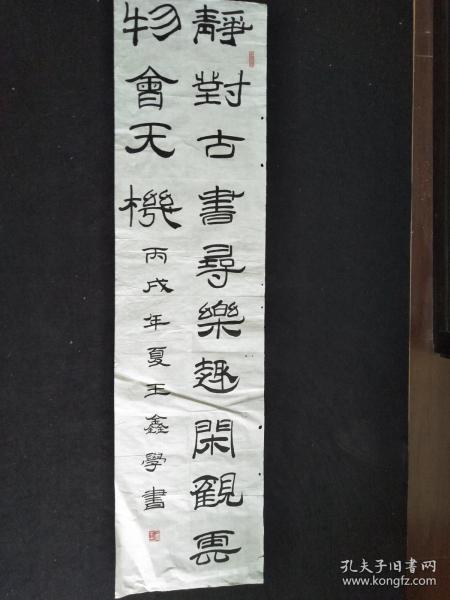 靜對古書尋樂趣閑觀雲
物會天機
丙戌年夏王鑫學書
孔夫子旧书网
www.kongfz.com